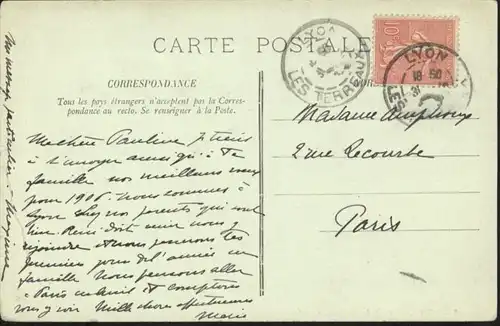 CARTE POSTALE
CORRESPONDANCE
Tous les pays étrangers n'acceptent pas la Corres-
pondance au recto. Se renseigner à la Poste.
LYON
LES TERREAUX
10
LYON
LES
Ma chère Pauline, je tiens
à t'envoyer ainsi qu'à ta
famille nos meilleurs vœux
pour 1906. Nous sommes à
Lyon chez nos parents qui vont
bien. René doit venir nous y
rejoindre et nous passerons les
premiers jours de l'année en
famille. Nous pensons aller
à Paris et comptons
vous y voir. Mille choses affectueuses
Marie
Madame
2 rue Lecourbe
Paris